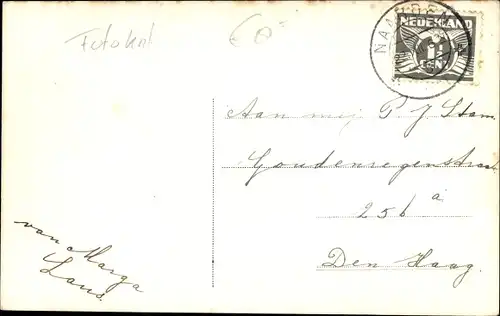 Fotokrt
NAARDEN
NEDERLAND
1½
CENT
Aan mej P J Stam
Goudenregenstraat
256 a
Den Haag.
van Marga
Laus.